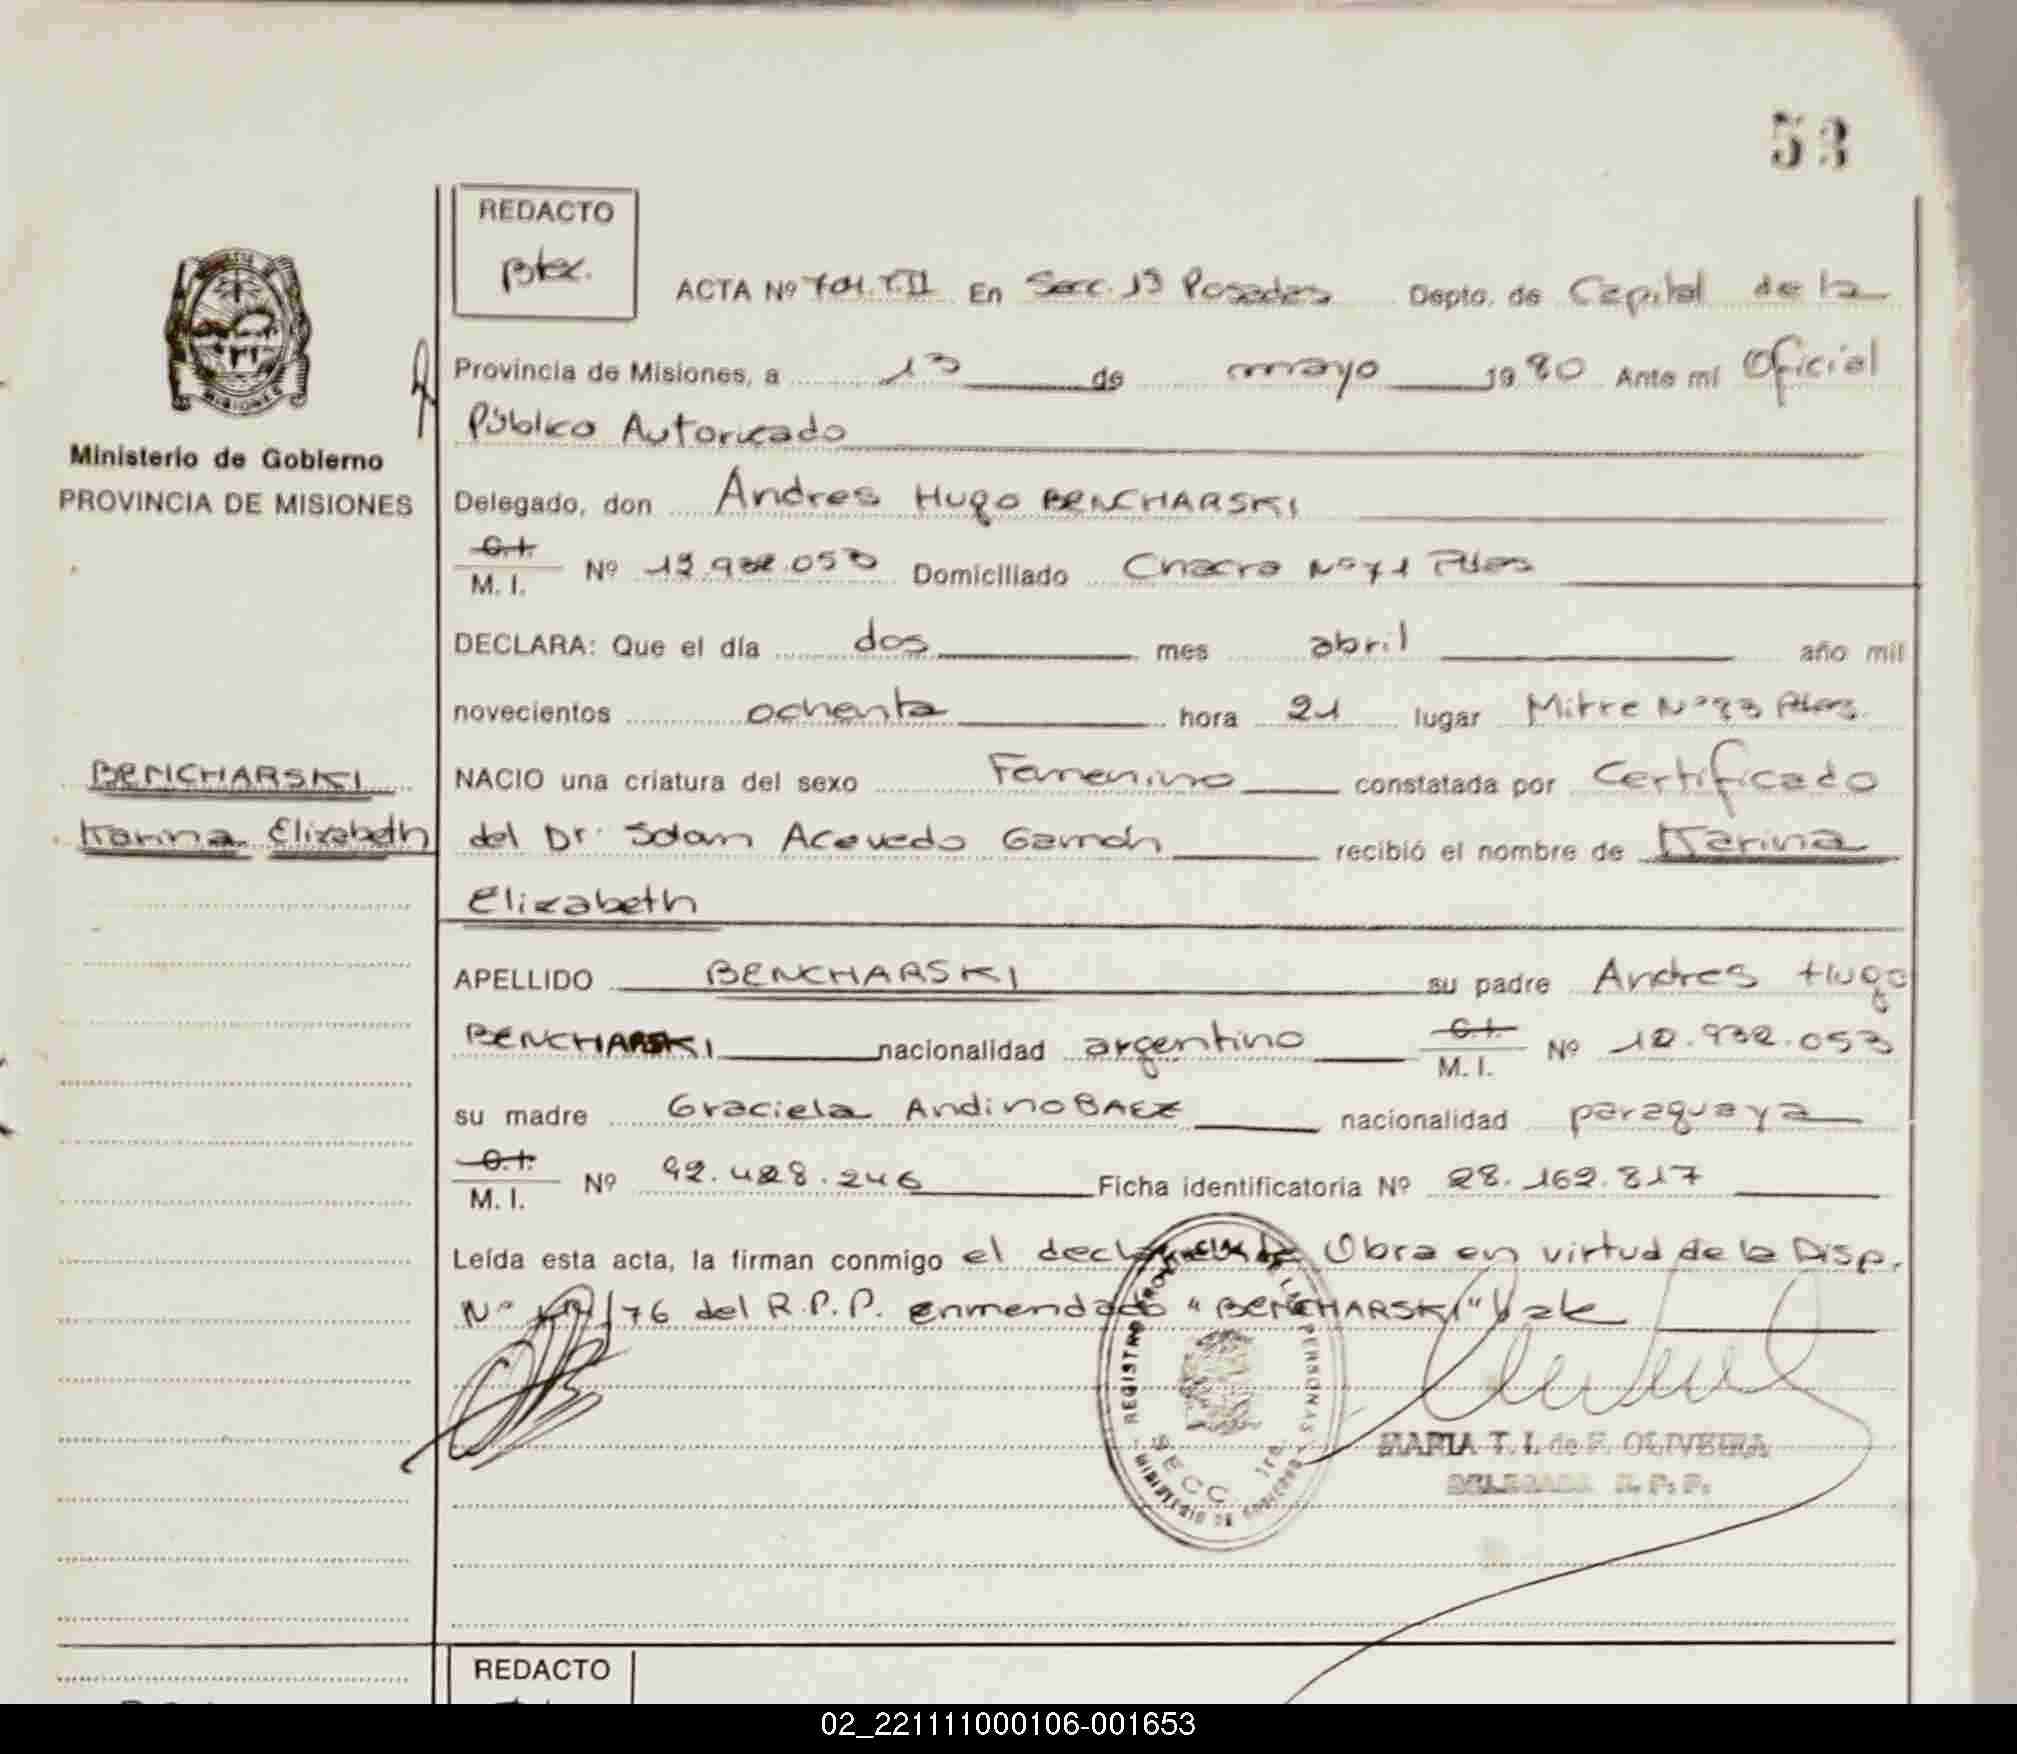 53
REDACTO
ACTA Nº 701.T.II En Secc. 1ª Posadas Depto. de Capital de la
Provincia de Misiones, a 13 de mayo 1980 Ante mi Oficial
Ministerio de Gobierno
PROVINCIA DE MISIONES
Público Autorizado
Delegado, don Andres Hugo BENCHARSKI
C.I.
M. I. Nº 932.053 Domiciliado Chacra Nº 71 Pdas
DECLARA: Que el día dos mes abril año mil
novecientos ochenta hora 21 lugar Mitre Nº Pdas.
BENCHARSKI
Karina Elizabeth
NACIO una criatura del sexo Femenino constatada por Certificado
del Dr. Acevedo recibió el nombre de Karina
Elizabeth
APELLIDO BENCHARSKI su padre Andres Hugo
BENCHARSKI nacionalidad argentino C.I.
M. I. Nº 932.053
su madre Graciela Andino BAEZ nacionalidad paraguaya
C.I.
M. I. Nº 92.428.246 Ficha identificatoria Nº 28.162.817
Leída esta acta, la firman conmigo el declarante Obra en virtud de la Disp.
Nº /76 del R.P.P. enmendado "BENCHARSKI" Vale
REGISTRO PROVINCIAL DE LAS PERSONAS
SECC. 1ra.
MINISTERIO DE GOBIERNO
MARIA T. I. de F. OLIVEIRA
DELEGADA R. P. P.
REDACTO
02_221111000106-001653